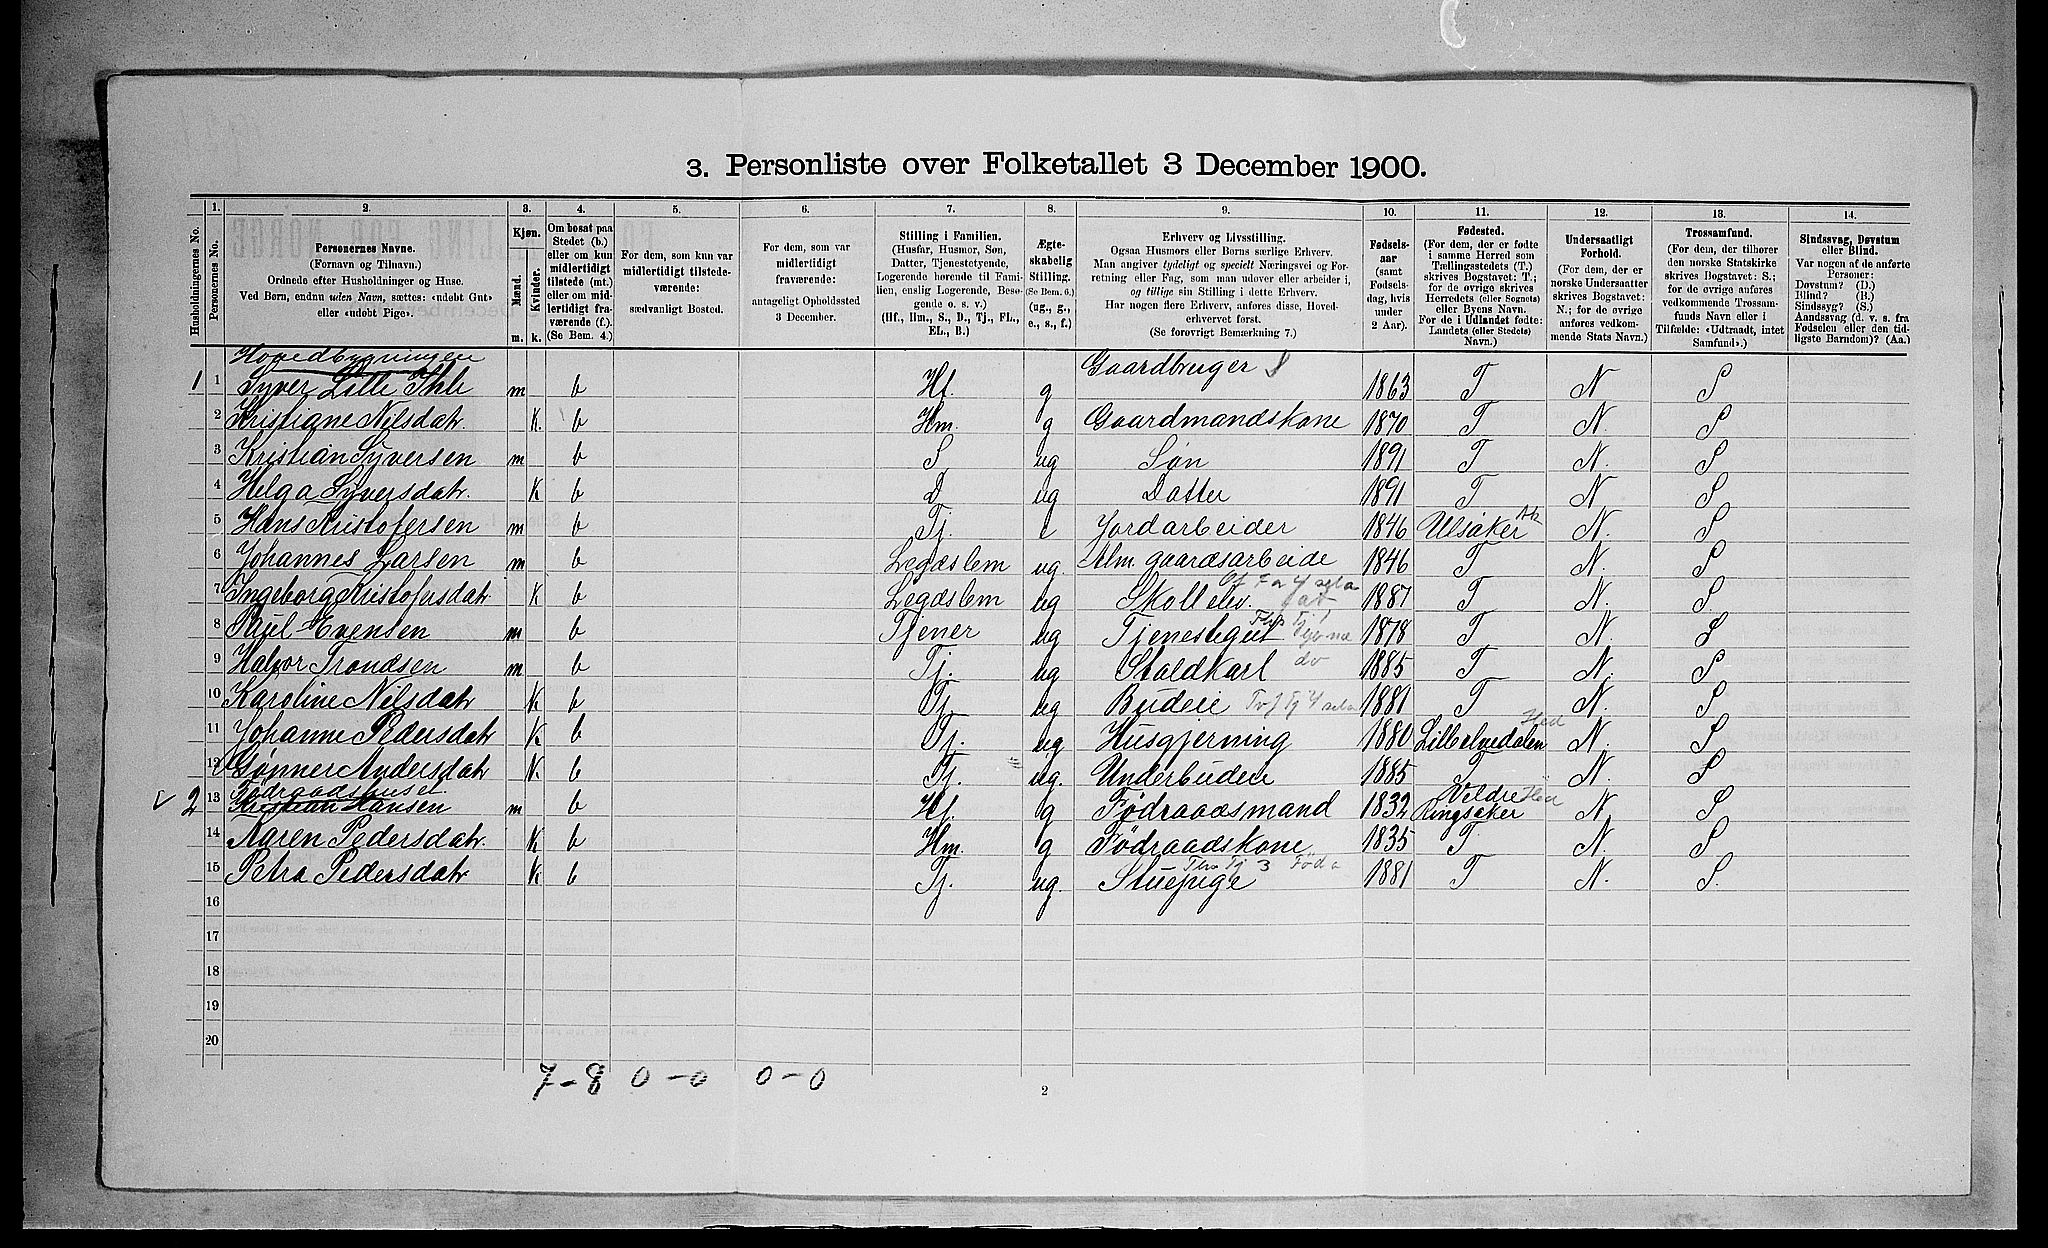 3. Personliste over Folketallet 3 December 1900.
Husholdningernes No.
1.
Personernes No.
2.
Personernes Navne.
(Fornavn og Tilnavn.)
Ordnede efter Husholdninger og Huse.
Ved Børn, endnu uden Navn, sættes: «udøbt Gut»
eller «udøbt Pige».
3.
Kjøn.
Mænd.
Kvinder.
m. k.
4.
Om bosat paa
Stedet (b.)
eller om kun
midlertidigt
tilstede (mt.)
eller om mid-
lertidigt fra-
værende (f.).
(Se Bem. 4.)
5.
For dem, som kun var
midlertidigt tilstede-
værende:
sædvanligt Bosted.
6.
For dem, som var
midlertidigt
fraværende:
antageligt Opholdssted
3 December.
7.
Stilling i Familien.
(Husfar, Husmor, Søn,
Datter, Tjenestetyende,
Logerende hørende til Fami-
lien, enslig Logerende, Besø-
gende o. s. v.)
(Hf., Hm., S., D., Tj., FL.,
EL., B.)
8.
Ægte-
skabelig
Stilling.
(Se Bem. 6.)
(ug., g.,
e., s., f.)
9.
Erhverv og Livsstilling.
Ogsaa Husmors eller Børns særlige Erhverv.
Man angiver tydeligt og specielt Næringsvei og For-
retning eller Fag, som man udøver eller arbeider i,
og tillige sin Stilling i dette Erhverv.
Har nogen flere Erhverv, anføres disse, Hoved-
erhvervet først.
(Se forøvrigt Bemærkning 7.)
10.
Fødsels-
aar
(samt
Fødsels-
dag, hvis
under
2 Aar).
11.
Fødested.
(For dem, der er fødte
i samme Herred som
Tællingsstedets (T.)
skrives Bogstavet: T.;
for de øvrige skrives
Herredets (eller Sognets)
eller Byens Navn.
For de i Udlandet fødte:
Landets (eller Stedets)
Navn.)
12.
Undersaatligt
Forhold.
(For dem, der er
norske Undersaatter
skrives Bogstavet:
N.; for de øvrige
anføres vedkom-
mende Stats Navn.)
13.
Trossamfund.
(For dem, der tilhører
den norske Statskirke
skrives Bogstavet: S.;
for de øvrige anføres
vedkommende Trossam-
funds Navn eller i
Tilfælde: «Udtraadt, intet
Samfund».)
14.
Sindssvag, Døvstum
eller Blind.
Var nogen af de anførte
Personer:
Døvstum? (D.)
Blind? (B.)
Sindssyg? (S.)
Aandssvag (d. v. s. fra
Fødselen eller den tid-
ligste Barndom)? (Aa.)
Hovedbygningen
1 1 Syver Lille Ihle m b Hf. g Gaardbruger 1863 T N S
2 Kristiane Nilsdatr. K. b Hm. g Gaardmandskone 1870 T N. S
3 Kristian Syversen m b S ug Søn 1891 T N. S
4 Helga Syversdatr. K b D ug Datter 1891 T N S
5 Hans Kristofersen m b Tj. e Jordarbeider 1846 Ulsaker Ak N. S
6 Johannes Larsen m b Legdslem ug. Alm. gaardsarbeide 1846 T N. S
7 Ingeborg Kristofersdatr. K b Legdslem ug Skoleelev. 1887 T N. S
8 Paul Evensen m b Tjener ug Tjenestegut 1878 T N. S
9 Halvor Trondsen m b Tj. ug Staldkarl do 1885 T N. S
10 Karoline Nilsdatr K b Tj ug Budeie 1881 T N. S
11 Johanne Pedersdatr K b Tj. ug Husgjerning 1880 Lilleelvedalen Hed N. S
12 Gønner Andersdatr K. b Tj. ug. Underbudeie 1885 T N. S
Fødraadshuset
2 13 Kristian Hansen m b Hf g Fødraadsmand 1832 Veldre Ringsaker Hed N S
14 Karen Pedersdatr. K b Hm. g Fødraadskone 1835 T N. S
15 Petra Pedersdatr K b Tj. ug. Stuepige 1881 T N. S.
16
17
18
19
20
7-8 0-0 0-0
2